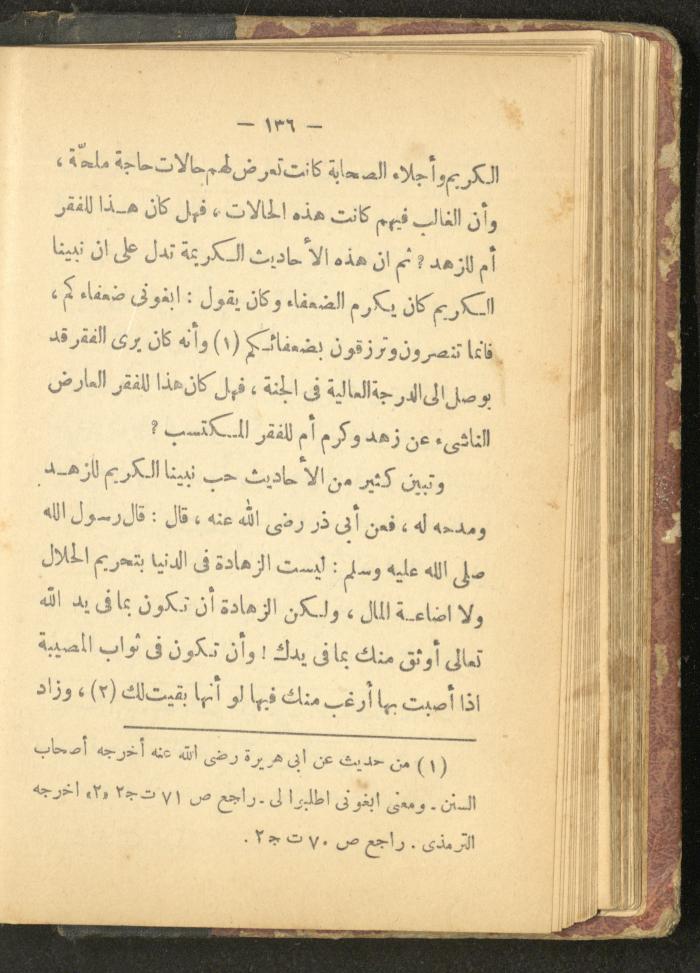 — ١٣٦ —
الكريم وأجلاء الصحابة كانت تعرض لهم حالات حاجة ملحّة ،
وأن الغالب فيهم كانت هذه الحالات ، فهل كان هذا للفقر
أم للزهد ؟ ثم ان هذه الأحاديث الكريمة تدل على ان نبينا
الكريم كان يكرم الضعفاء وكان يقول : ابغونى ضعفاءكم ،
فانما تنصرون وترزقون بضعفائكم (١) وأنه كان يرى الفقر قد
يوصل الى الدرجة العالية فى الجنة ، فهل كان هذا للفقر العارض
الناشىء عن زهد وكرم أم للفقر المكتسب ؟
وتبين كثير من الأحاديث حب نبينا الكريم للزهد
ومدحه له ، فعن أبى ذر رضى الله عنه ، قال : قال رسول الله
صلى الله عليه وسلم : ليست الزهادة فى الدنيا بتحريم الحلال
ولا اضاعة المال ، ولكن الزهادة أن تكون بما فى يد الله
تعالى أوثق منك بما فى يدك ! وأن تكون فى ثواب المصيبة
اذا أصبت بها أرغب منك فيها لو أنها بقيت لك (٢) ، وزاد
(١) من حديث عن ابى هريرة رضى الله عنه أخرجه أصحاب
السنن . ومعنى ابغونى اطلبوا لى . راجع ص ٧١ ت ج٢ «٢» اخرجه
الترمذى . راجع ص ٧٠ ت ج٢ .